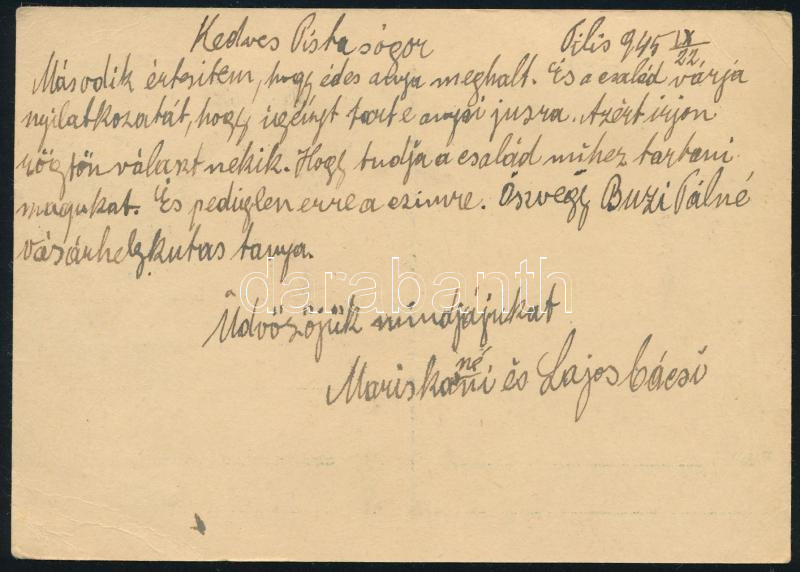 Kedves Pista sógor Pilis 945 IX/22
Második értesitem, hogy édes anyja meghalt. És a család várja
nyilatkozatát, hogy igényt tart e anyai jusra. Azért irjon
rögtön választ nekik. Hogy tudja a család mihez tartani
magukat. És pediglen erre a czimre. Özvegy Buzi Pálné
vásárhelykutas tanya.
darabanth
Üdvözöjük mindjájukat
Mariska né ni és Lajos bácsi